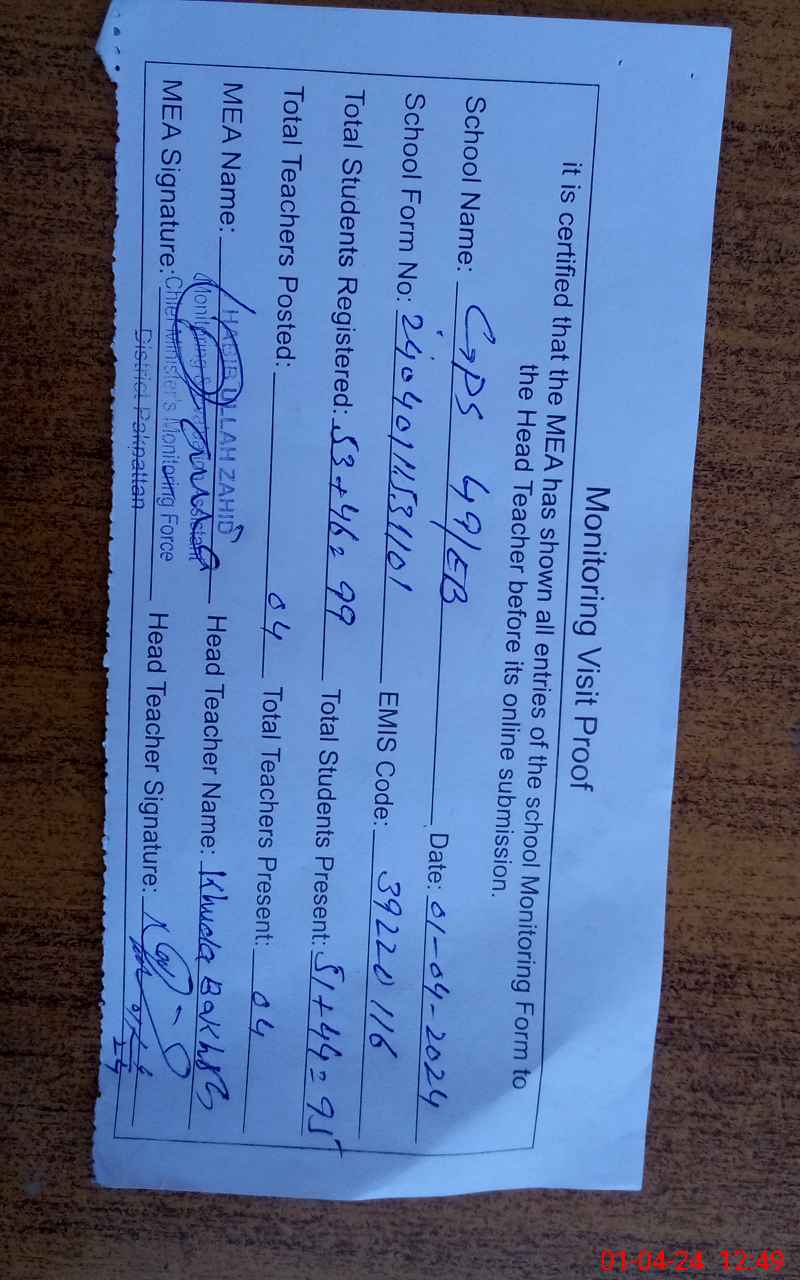 Monitoring Visit Proof
it is certified that the MEA has shown all entries of the school Monitoring Form to
the Head Teacher before its online submission.
School Name: GPS 49/EB Date: 01-04-2024
School Form No: EMIS Code: 39220116
Total Students Registered: 53+46=99 Total Students Present: 51+44=95
Total Teachers Posted: 04 Total Teachers Present: 04
MEA Name: HABIB ULLAH ZAHID Head Teacher Name: Khuda Bakhsh
Monitoring
MEA Signature: Chief Minister's Monitoring Force Head Teacher Signature:
District Pakpattan
01-04-24 12:49